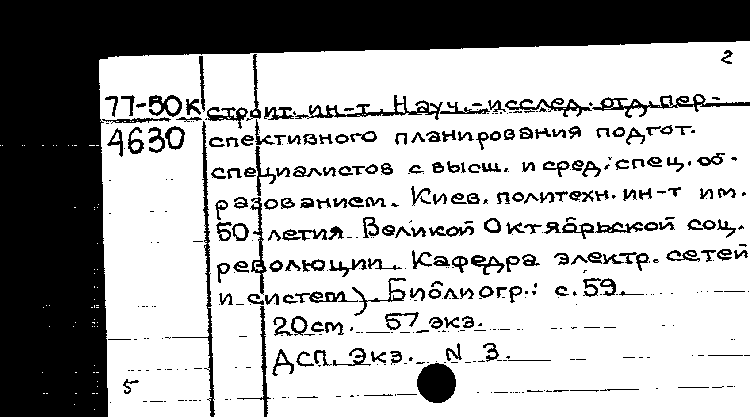 2
77-50к строит. ин-т. Науч.-исслед. отд. пер-
4630 спективного планирования подгот.
специалистов с высш. и сред. спец. об-
разованием. Киев. политехн. ин-т им.
50-летия Великой Октябрьской соц.
революции. Кафедра электр. сетей
и систем). Библиогр.: с. 59.
20см. 57 экз.
Дсп. Экз. N 3.
5